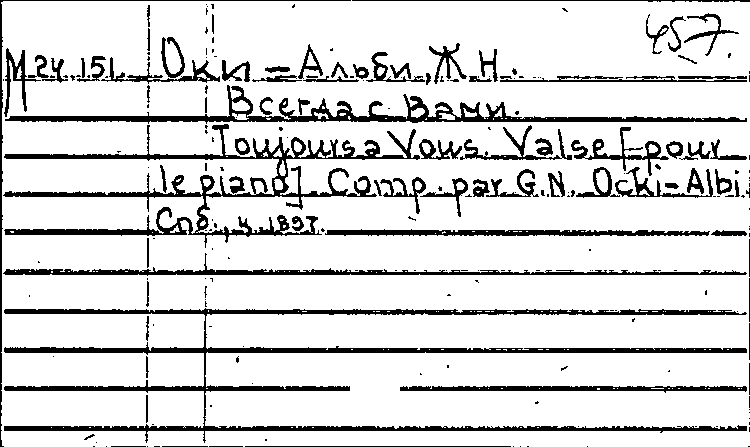 457.
М 24.151. Оки-Альби, Ж.Н.
Всегда с Вами.
Toujours a Vous. Valse [pour
le piano]. Comp. par G.N. Ocki-Albi.
Спб., ц. 1897.